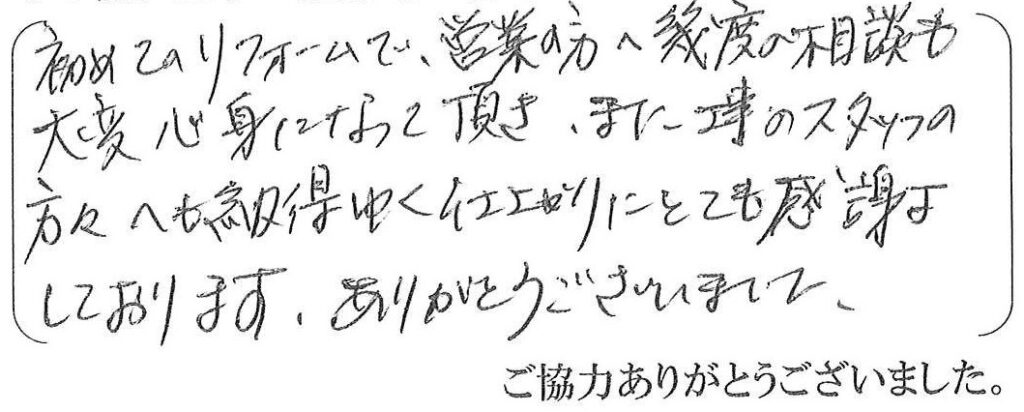 初めてのリフォームで、営業の方へ幾度の相談も
大変心身になって頂き、また工事のスタッフの
方々へも納得ゆく仕上がりにとても感謝を
しております。ありがとうございました。
ご協力ありがとうございました。